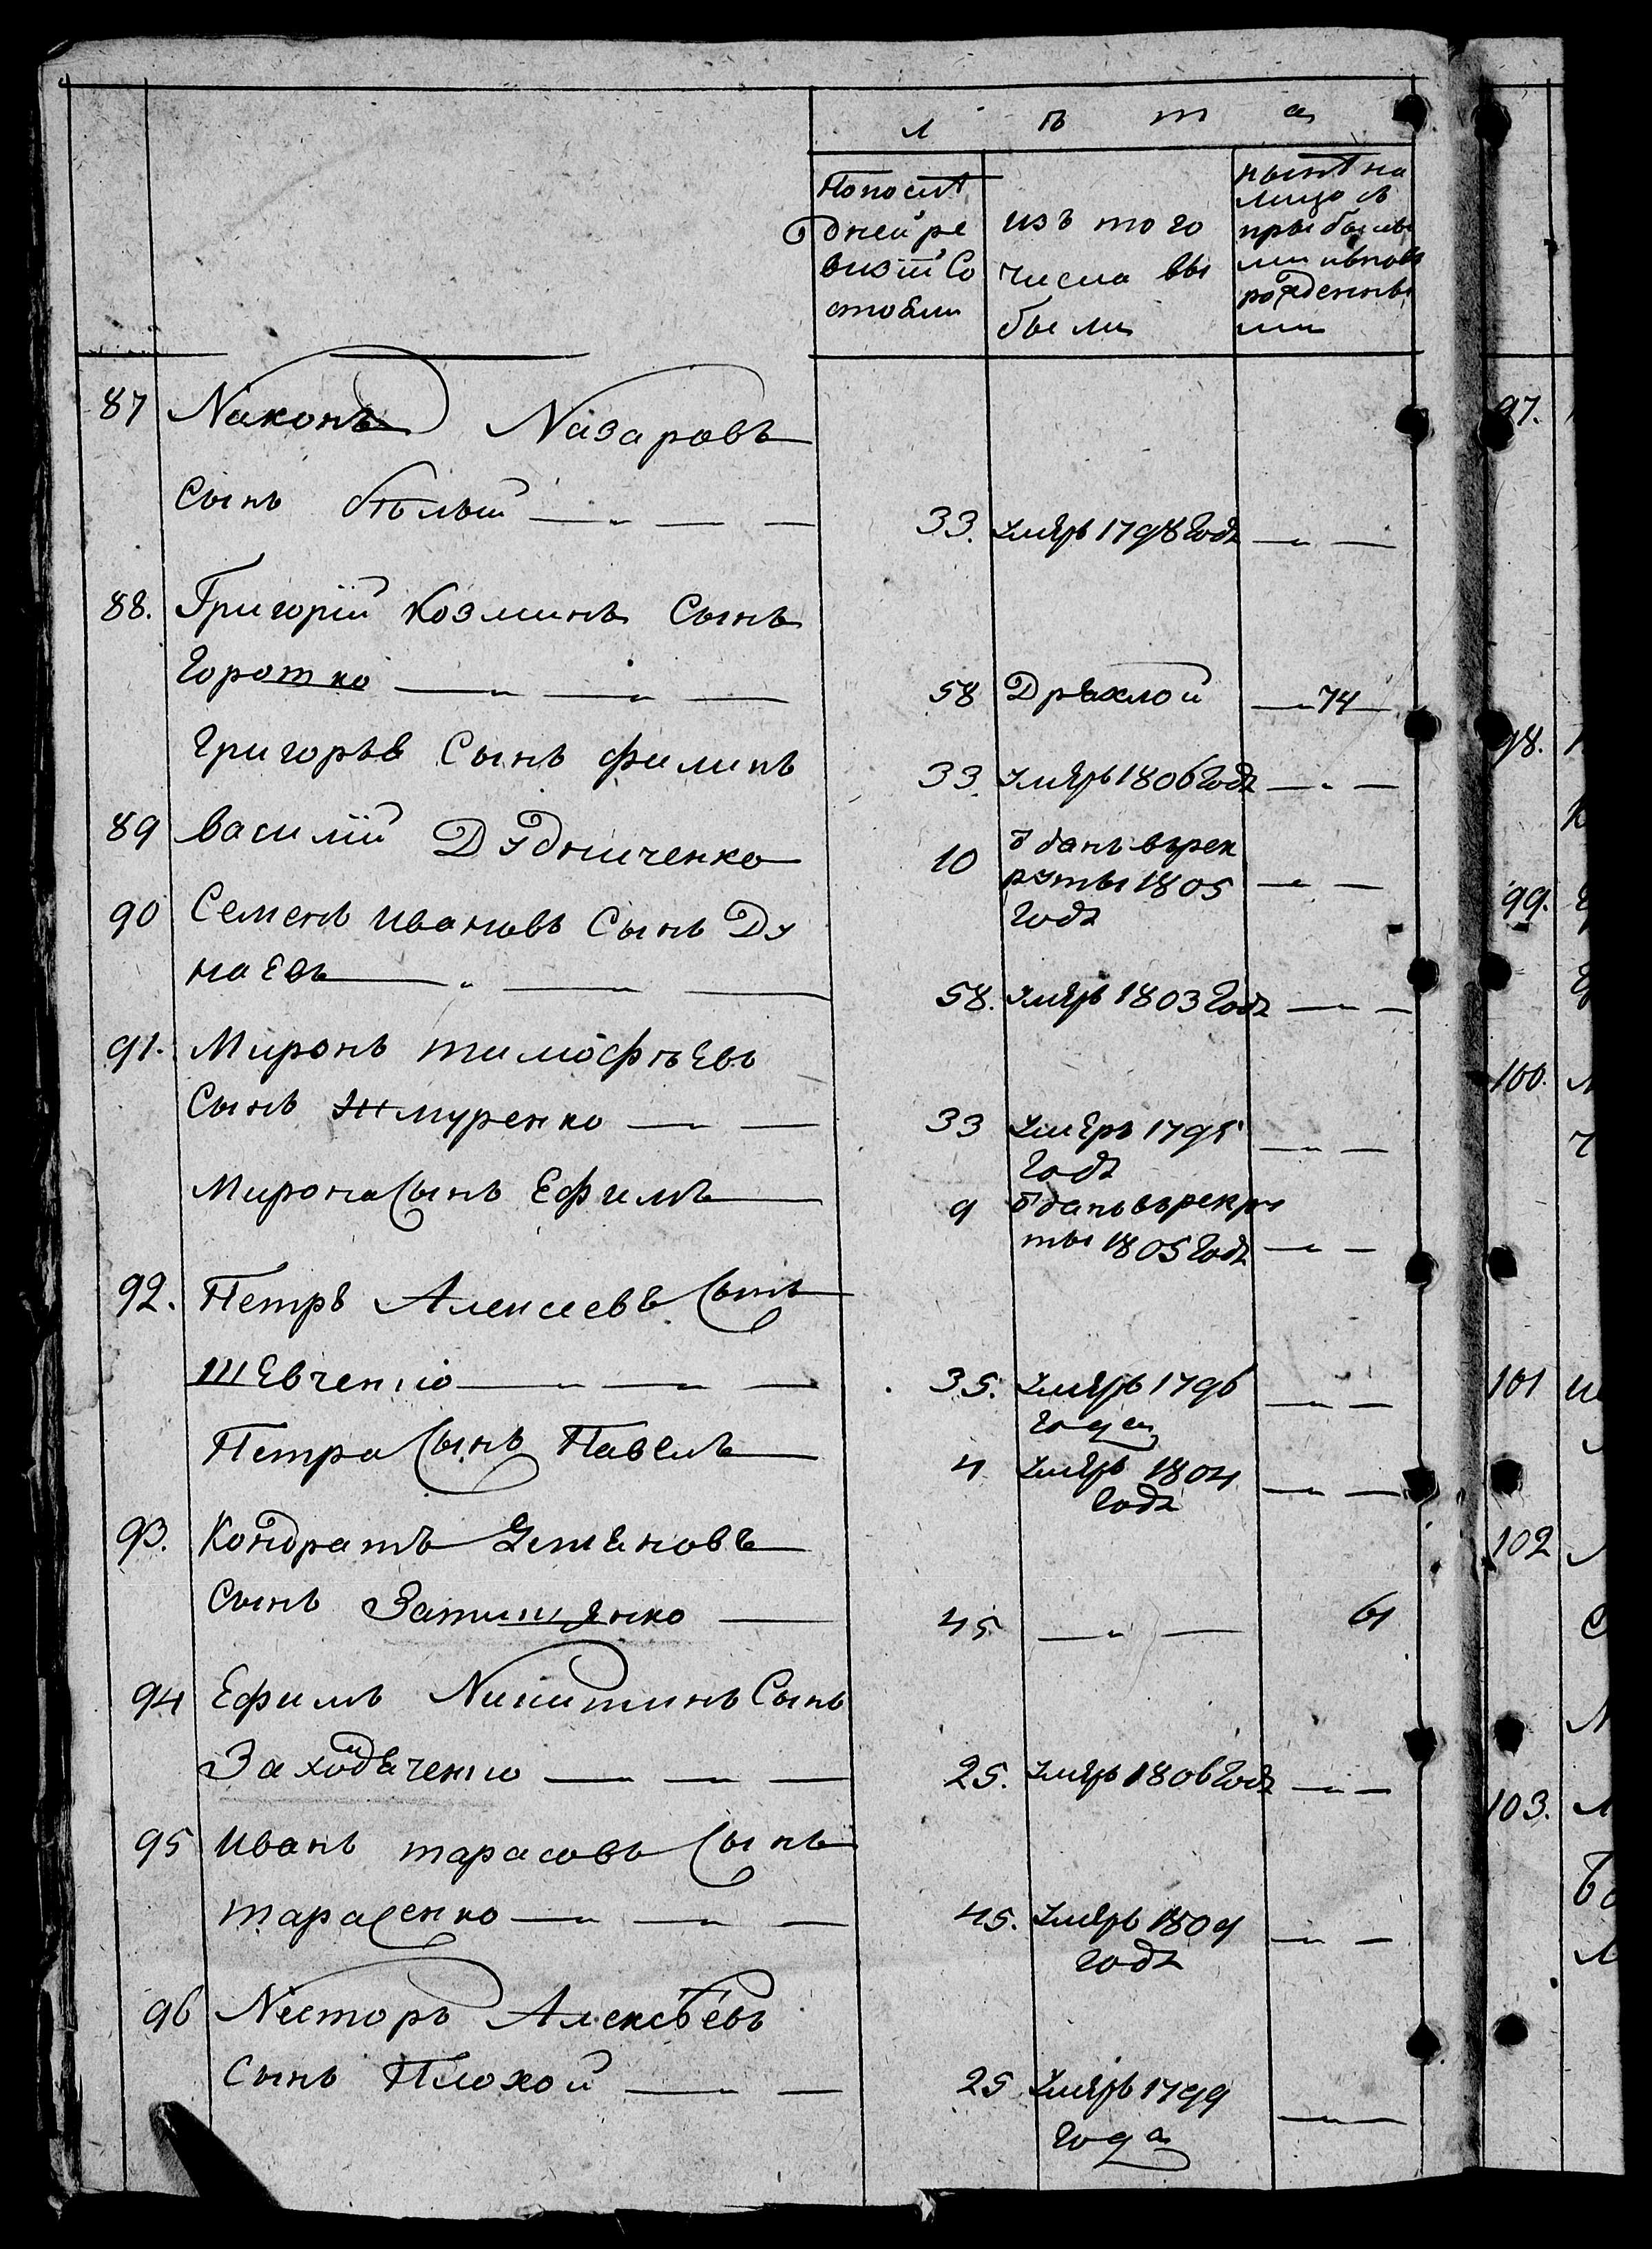 л ѣ т а
По посл ѣ
дней ре
визіи Со
стояли
изъ того
числа вы
были
нынѣ на
лицо съ
прибылы
ми и вновь
рожденны
ми
87 Никонъ Назаровъ
Сынъ бѣлый 33. умеръ 1798 годꙋ
88. Григорій Козминъ Сынъ
Горошко 58 Дряхлой 74
Григорьѣв Сынъ Филипъ 33. умеръ 1806 годꙋ
89 Василій Дудниченко 10 ѿдань въ рек
руты 1805
годꙋ
90 Семенъ Ивановъ Сынъ Ду
наевъ 58. умеръ 1803 годꙋ
91. Миронъ тимофѣевъ
Сынъ Жмуренко 33 умеръ 1795
годꙋ
Мирона Сынъ Ефимъ 9 ѿдань въ рекру
ты 1805 годꙋ
92. Петръ Алексеевъ Сынъ
Шевченко 35. умеръ 1796
года
Петра Сынъ Павелъ 4 умеръ 1804
годꙋ
93. Кондратъ Устиновъ
Сынъ 45 61
94 Ефимъ Никитинъ Сынъ
Заходяченко 25. умеръ 1806 годꙋ
95 Иванъ тарасовъ Сынъ
тарасенко 45. умеръ 1809
годꙋ
96 Несторъ Алексѣевъ
Сынъ Плохой 25 умеръ 1799
года
97.
98.
99.
100.
101
102
103.